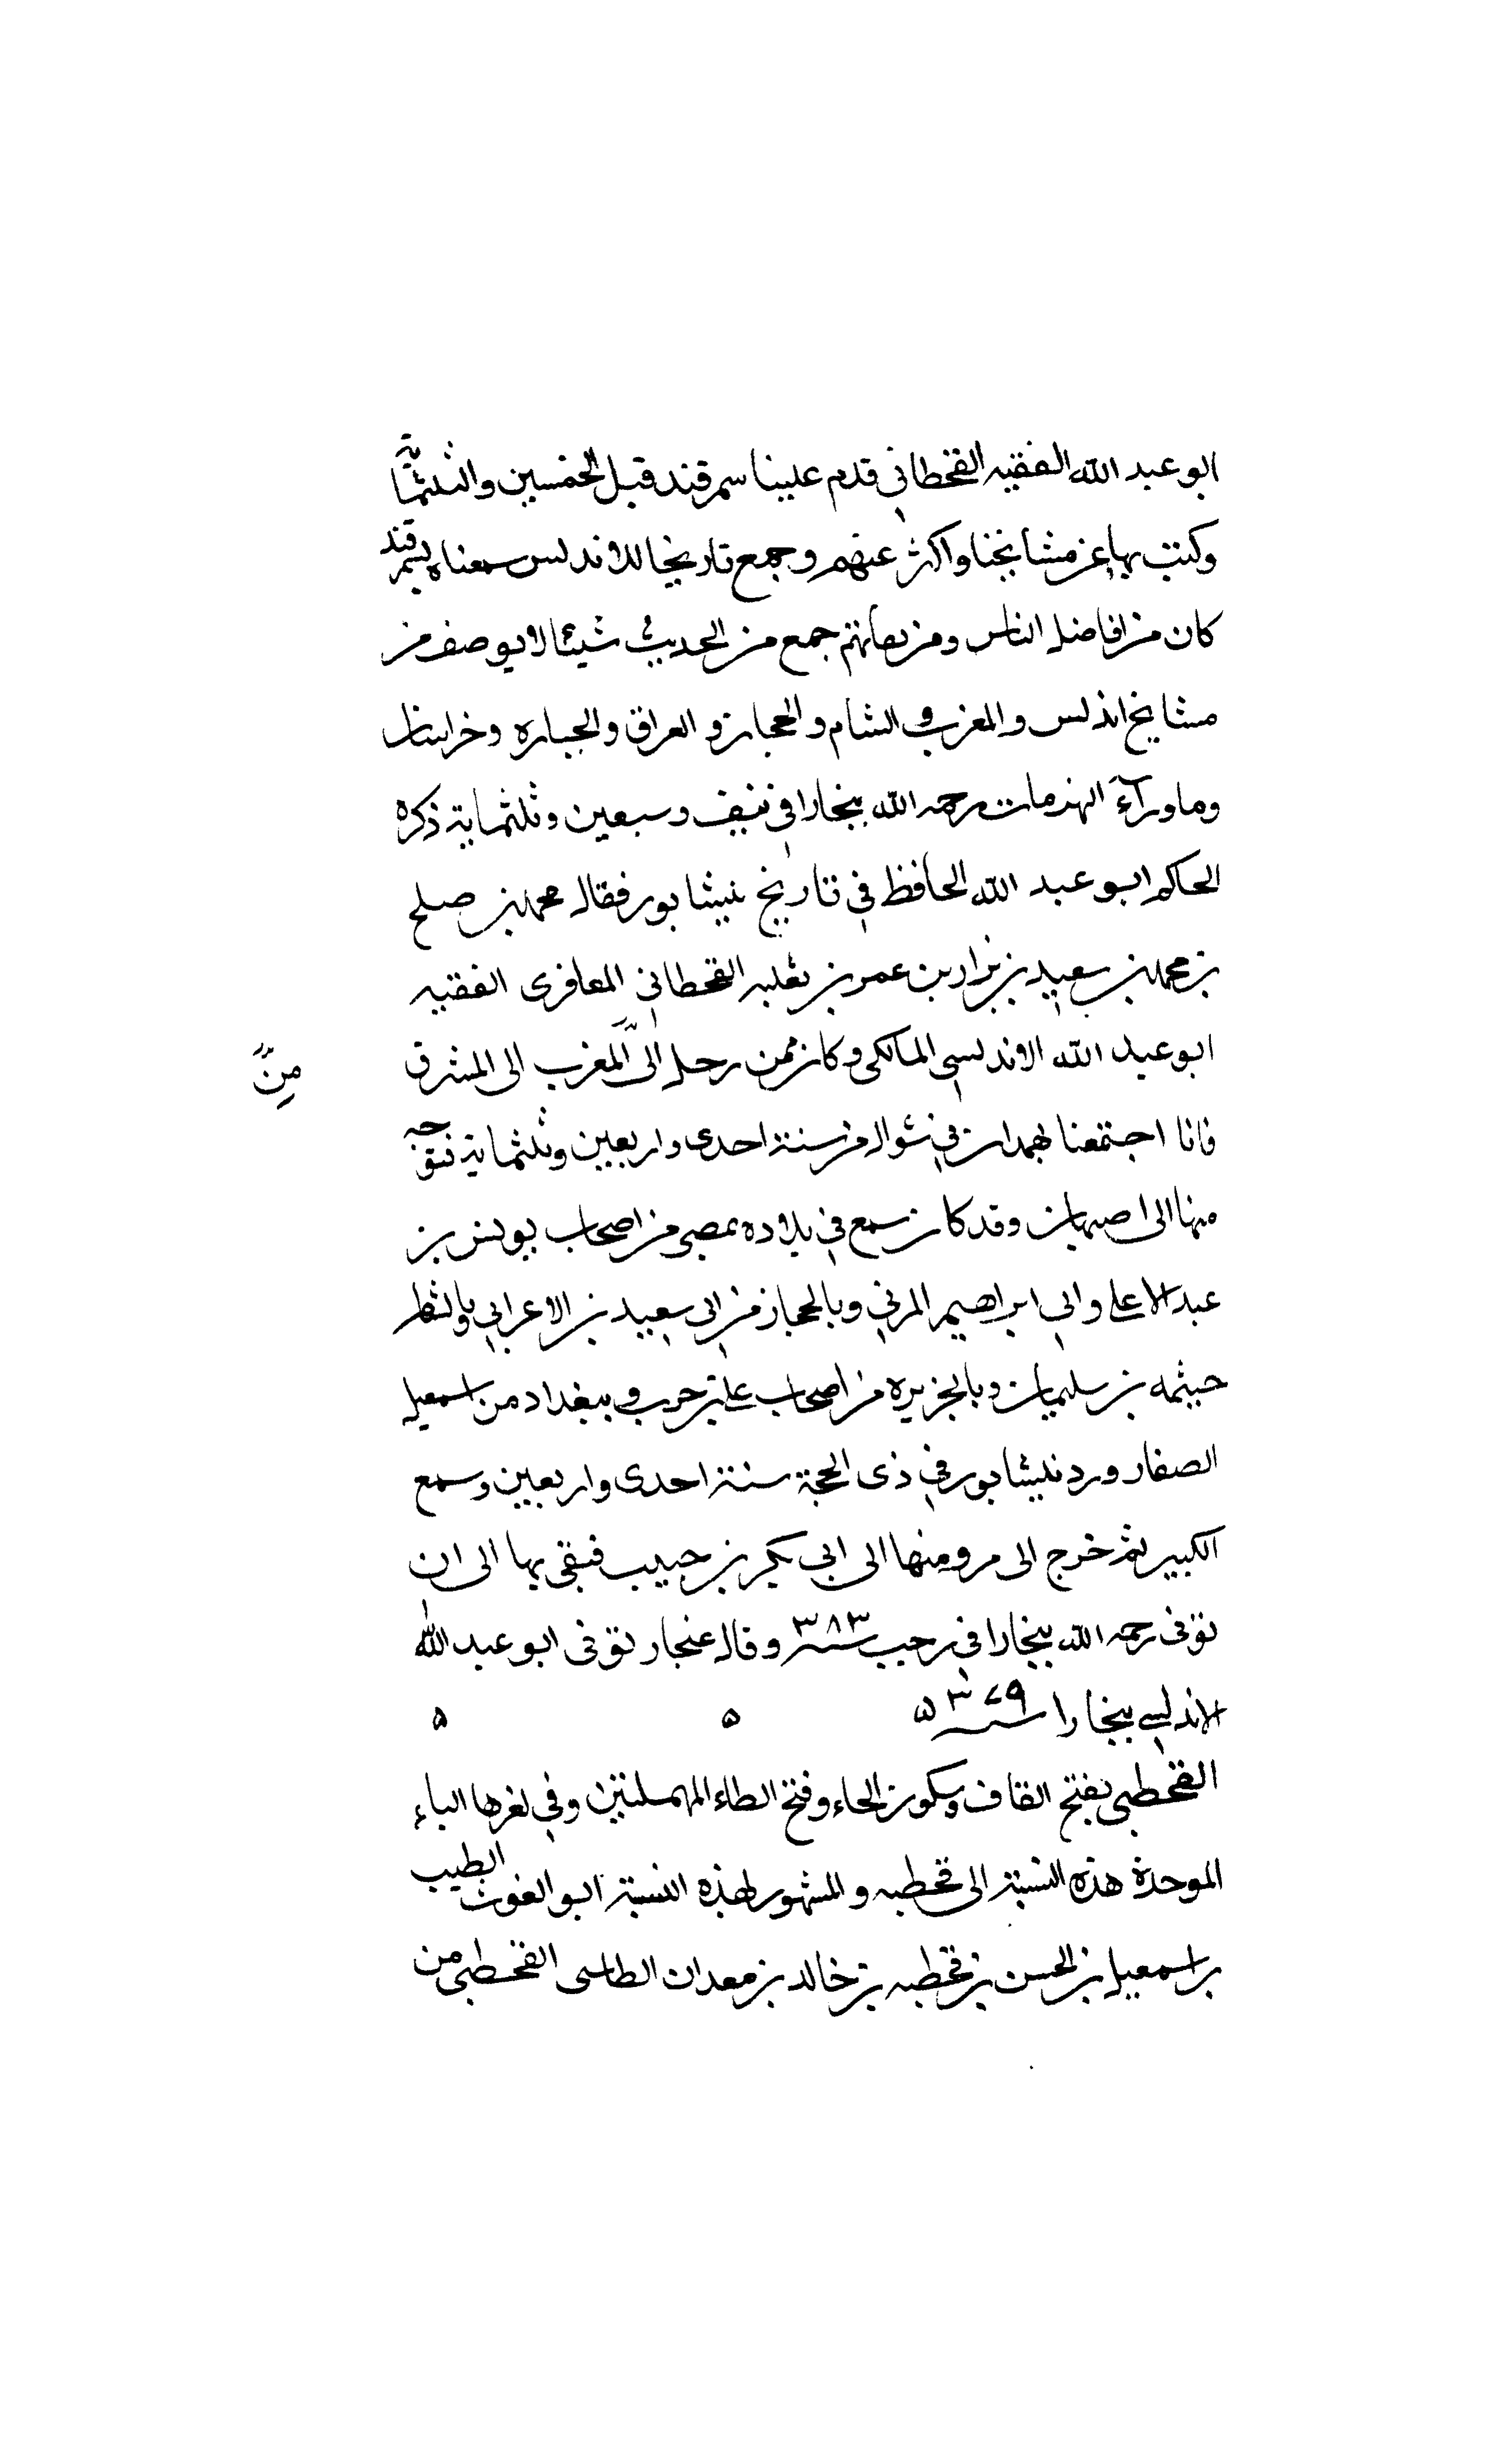 ابو عبد الله الفقيه القحطاني قدم علينا سمرقند قبل الخمسين والثلثمائة
وكتب بها عن مشايخنا واكثر عنهم وجمع تاريخا للاندلس سمعناه بسمرقند
كان من افاضل الناس ومن ثقاتهم جمع من الحديث شيئا لا يوصف من
مشايخ اندلس والمغرب والشام والحجاز والعراق والجبال وخراسان
وما ورآء النهر مات رحمه الله ببخارا في نيف وسبعين وثلثماية ذكره
الحاكم ابو عبد الله الحافظ في تاريخ نيشابور فقال محمد بن صلح
بن محمد بن سعيد بن نزار بن عمر بن ثعلبه القحطاني المعافرى الفقيه
ابو عبد الله الاندلسي المالكى وكان ممن رحل الى المغرب الى المشرق
من
فانا اجتمعنا بهمدان في شوال من سنة احدى واربعين وثلثماية فتوجه
منها الى اصبهان وقد كان سمع في بلاده بمصر من اصحاب يونس بن
عبد الاعلى وابي ابراهيم المزني وبالحجاز من ابي سعيد بن الاعرابي وبالشام
خيثمه بن سليمان وبالجزيره من اصحاب علي بن حرب وببغداد من اسمعيل
الصفار ورد نيشابور في ذى الحجة سنة احدى واربعين وسمع
الكبير ثم خرج الى مرو ومنها الى ابي بكر بن حبيب فبقى بها الى ان
توفى رحمه الله ببخارا في رجب سنه ٣٨٣ وقال غنجار توفى ابو عبد الله
الاندلسي ببخارا سنه ٣٧٩ ٥ ٥ ٥
القحطبي بفتح القاف وسكون الحاء وفتح الطاء المهملتين وفي اخرها الباء
الموحدة هذه النسبة الى قحطبه والمشهور بهذه النسبة ابو الغوث الطيب
بن اسمعيل بن الحسن بن قحطبه بن خالد بن معدان الطاسى القحطبي من